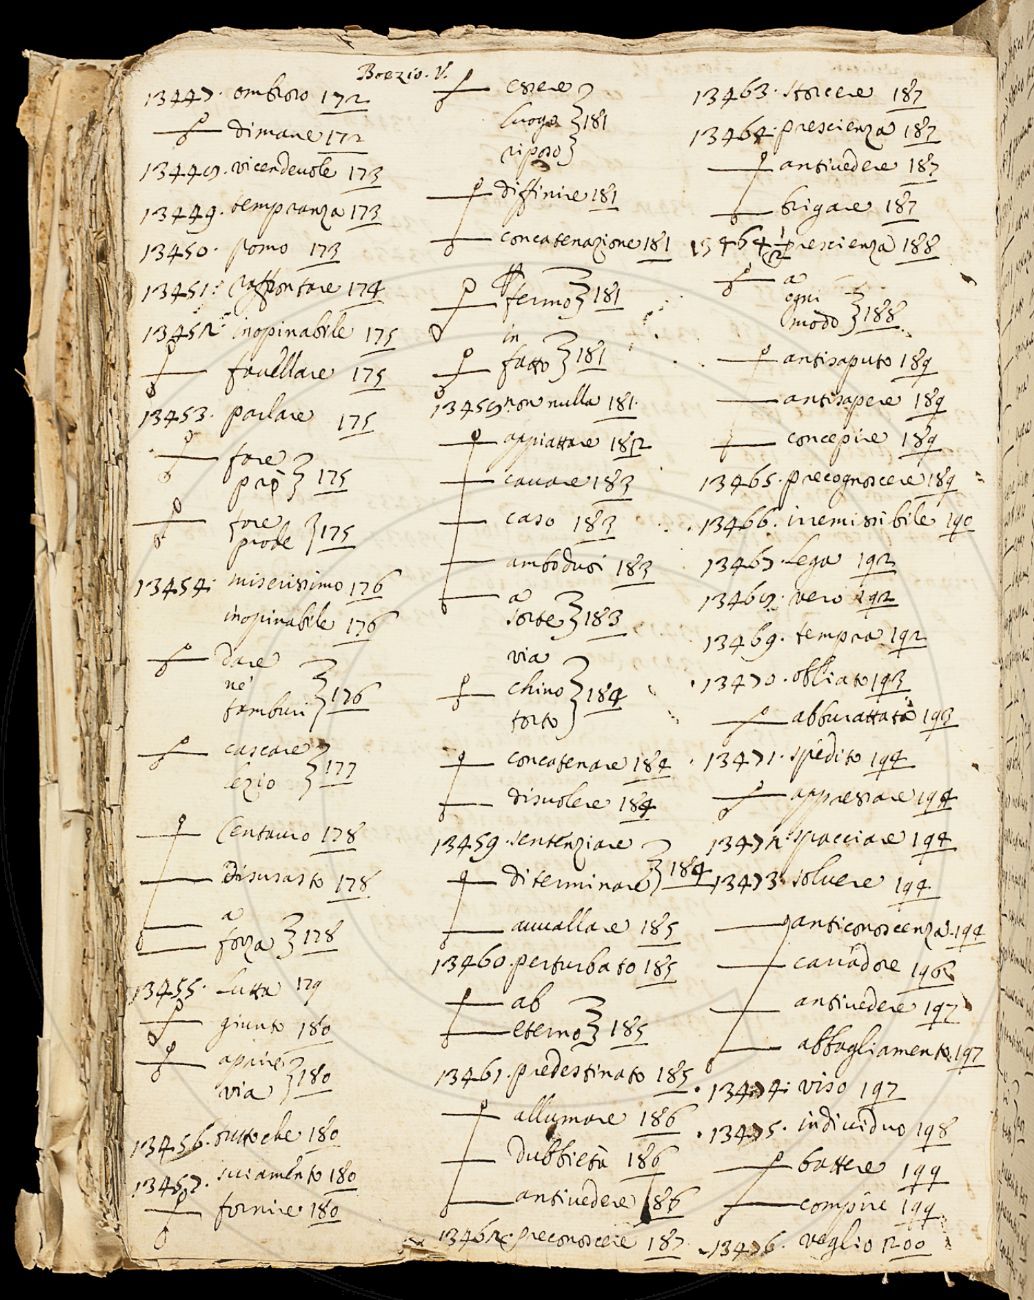 Boezio. V.
13447. ombroso 172
dimane 172
13448. vicendevole 173
13449. temperanza 173
13450. pomo 173
13451. raffrontare 174
13452. inopinabile 175
favellare 175
13453. parlare 175
fare
prò } 175
fare
prode } 175
13454. miserissimo 176
inopinabile 176
dare
ne'
tamburi } 176
cascare
lezio } 177
Centauro 178
Disusato 178
a
forza } 178
13455. lutta 179
giunto 180
aprire
via } 180
13456. tuttoche 180
13457. 180
fornire. 180
essere
luogo
riposo } 181
diffinire 181
concatenazione 181
fermo } 181
in
fatto } 181
13458. non nulla 181.
appiattare 182
cavare 183
caso 183
ambodusi 183
a
sorte } 183
via
chino
torto } 184
concatenare 184
disvolere 184
13459. sentenziare
diterminare } 184
avvallare 185
13460. perturbato 185
ab
eterno } 185
13461. predestinato 185
allumare 186
dubbietà 186
antivedere 186
13462. preconoscere 187
13463. storcere 187
13464. prescienza 187
antivedere 187
brigare 187
13464 1/2 prescienza 188
a
ogni
modo } 188
antisaputo 189
antisapere 189
concepire 189
13465. precognoscere 189
13466. iremissibile 190
13467. lega 192
13468. vero 192
13469. tempra 192
13470. obliato 193
abburattata 193
13471. spedito 194
appressare 194
13472. spacciare 194
13473. solvere 194
anticonoscenza. 194
cavadore 196
antivedere 197
abbagliamento. 197
13474. viso 197
13475. individuo 198
battere 199
compire 199
13476. veglio 200